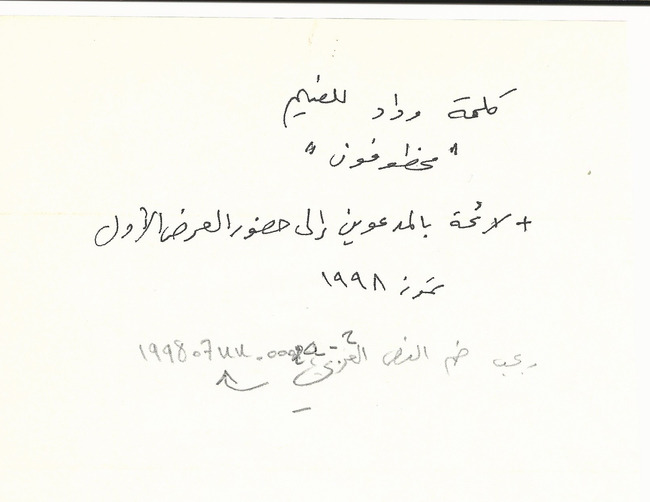 كلمة وداد للفيلم
"مخطوفون"
+ لائحة بالمدعوين إلى حضور العرض الأول
تموز ١٩٩٨
يجب ضم النص العربي